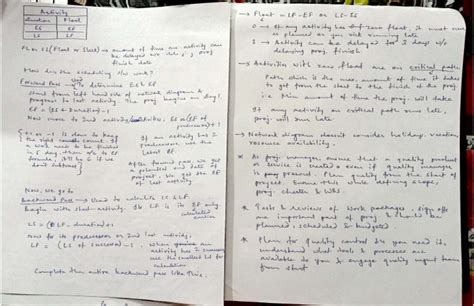 Activity
Duration Float
ES EF
LS LF
Float (Float or Slack) → amount of time an activity can
be delayed w/o
finish date
How does the scheduling work?
Forward Pass → to determine ES & EF
Start from left hand side of network diagram &
progress to last activity. The proj. begins on day 1.
EF = (ES + Duration) - 1
Now move to 2nd activity ES = (EF of
predecessor) + 1
-1 is done to keep
the right count. If
a work need to be finished
in 5 day, then w/o -1
formula, it'll be 6 if we
don't subtract
If an activity has 2
predecessor, use the
latest EF
After forward pass, we got
a potential end date if
project. We got the EF
of last activity
Now, we go to
Backward Pass → Used to calculate LS & LF
Begin with last activity. Its LF is its EF only
calculated earlier
LS = (LF - duration) +
Now for its predecessor or 2nd last activity.
LF = (LS of successor) - 1
When an
activity has 2 successors
use the smallest LS for
calculation
Complete the entire backward pass like this.
→ Float = LF - EF or LS - ES
0 → If any activity has zero float, it must
as planned or you risk running late
3 → Activity can be delayed for 3 days w/o
delaying proj. finish
→ Activities with zero float are on critical path.
Path which is the max. amount of time it takes
to get from the start to the finish of the proj.
i.e. min amount of time the proj. will take
If any activity on critical path runs late,
proj. will run late
→ Network diagram doesn't consider holiday, vacation,
resource availability.
* As proj. manager, ensure that a quality product
or service is created even if quality manager
is present. Plan quality from the start of
project. Ensure this while defining scope,
proj. charter & WBS.
* Tests & reviews of work packages, sign offs
are important part of proj & should be
planned, scheduled & budgeted
* Plan for quality control you need it,
understand what tools & processes are
available to you & engage quality mgmt team
from start